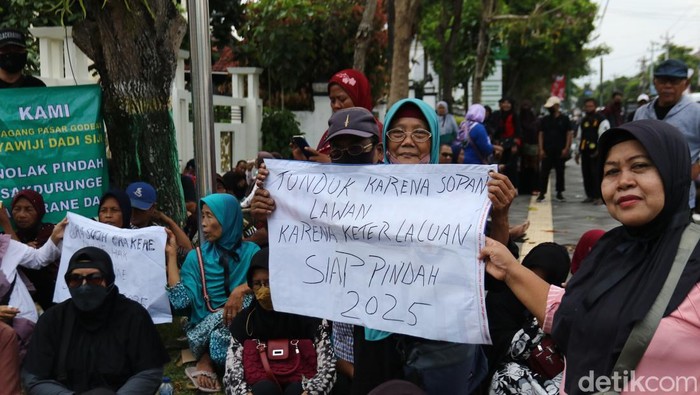 KAMI
AGANG PASAR GODE
YAWIJI DADI SIJ
NOLAK PINDAH
SAKDURUNGE
RANE DA
TUNDUK KARENA SOPAN
LAWAN
KARENA KETERLALUAN
SIAP PINDAH
2025
detikcom